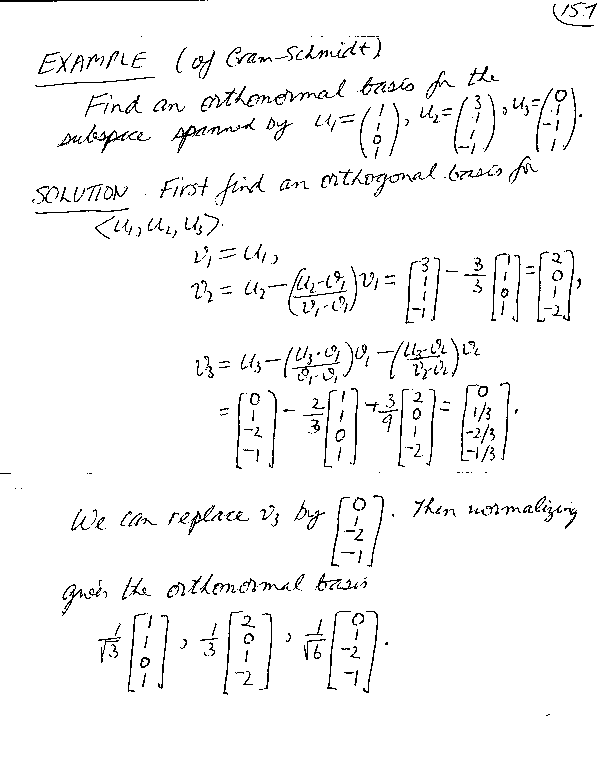 15.7
EXAMPLE (of Gram-Schmidt)
Find an orthonormal basis for the
subspace spanned by u₁ = (1 1 0 1), u₂ = (3 1 1 -1), u₃ = (0 1 -1 1).
SOLUTION. First find an orthogonal basis for
<u₁, u₂, u₃>.
v₁ = u₁,
v₂ = u₂ - (u₂·v₁ / v₁·v₁) v₁ = [3 1 1 -1] - 3/3 [1 1 0 1] = [2 0 1 -2],
v₃ = u₃ - (u₃·v₁ / v₁·v₁) v₁ - (u₃·v₂ / v₂·v₂) v₂
= [0 1 -2 -1] - 2/3 [1 1 0 1] + 3/9 [2 0 1 -2] = [0 1/3 -2/3 -1/3].
We can replace v₃ by [0 1 -2 -1]. Then normalizing
gives the orthonormal basis
1/√3 [1 1 0 1], 1/3 [2 0 1 -2], 1/√6 [0 1 -2 -1].